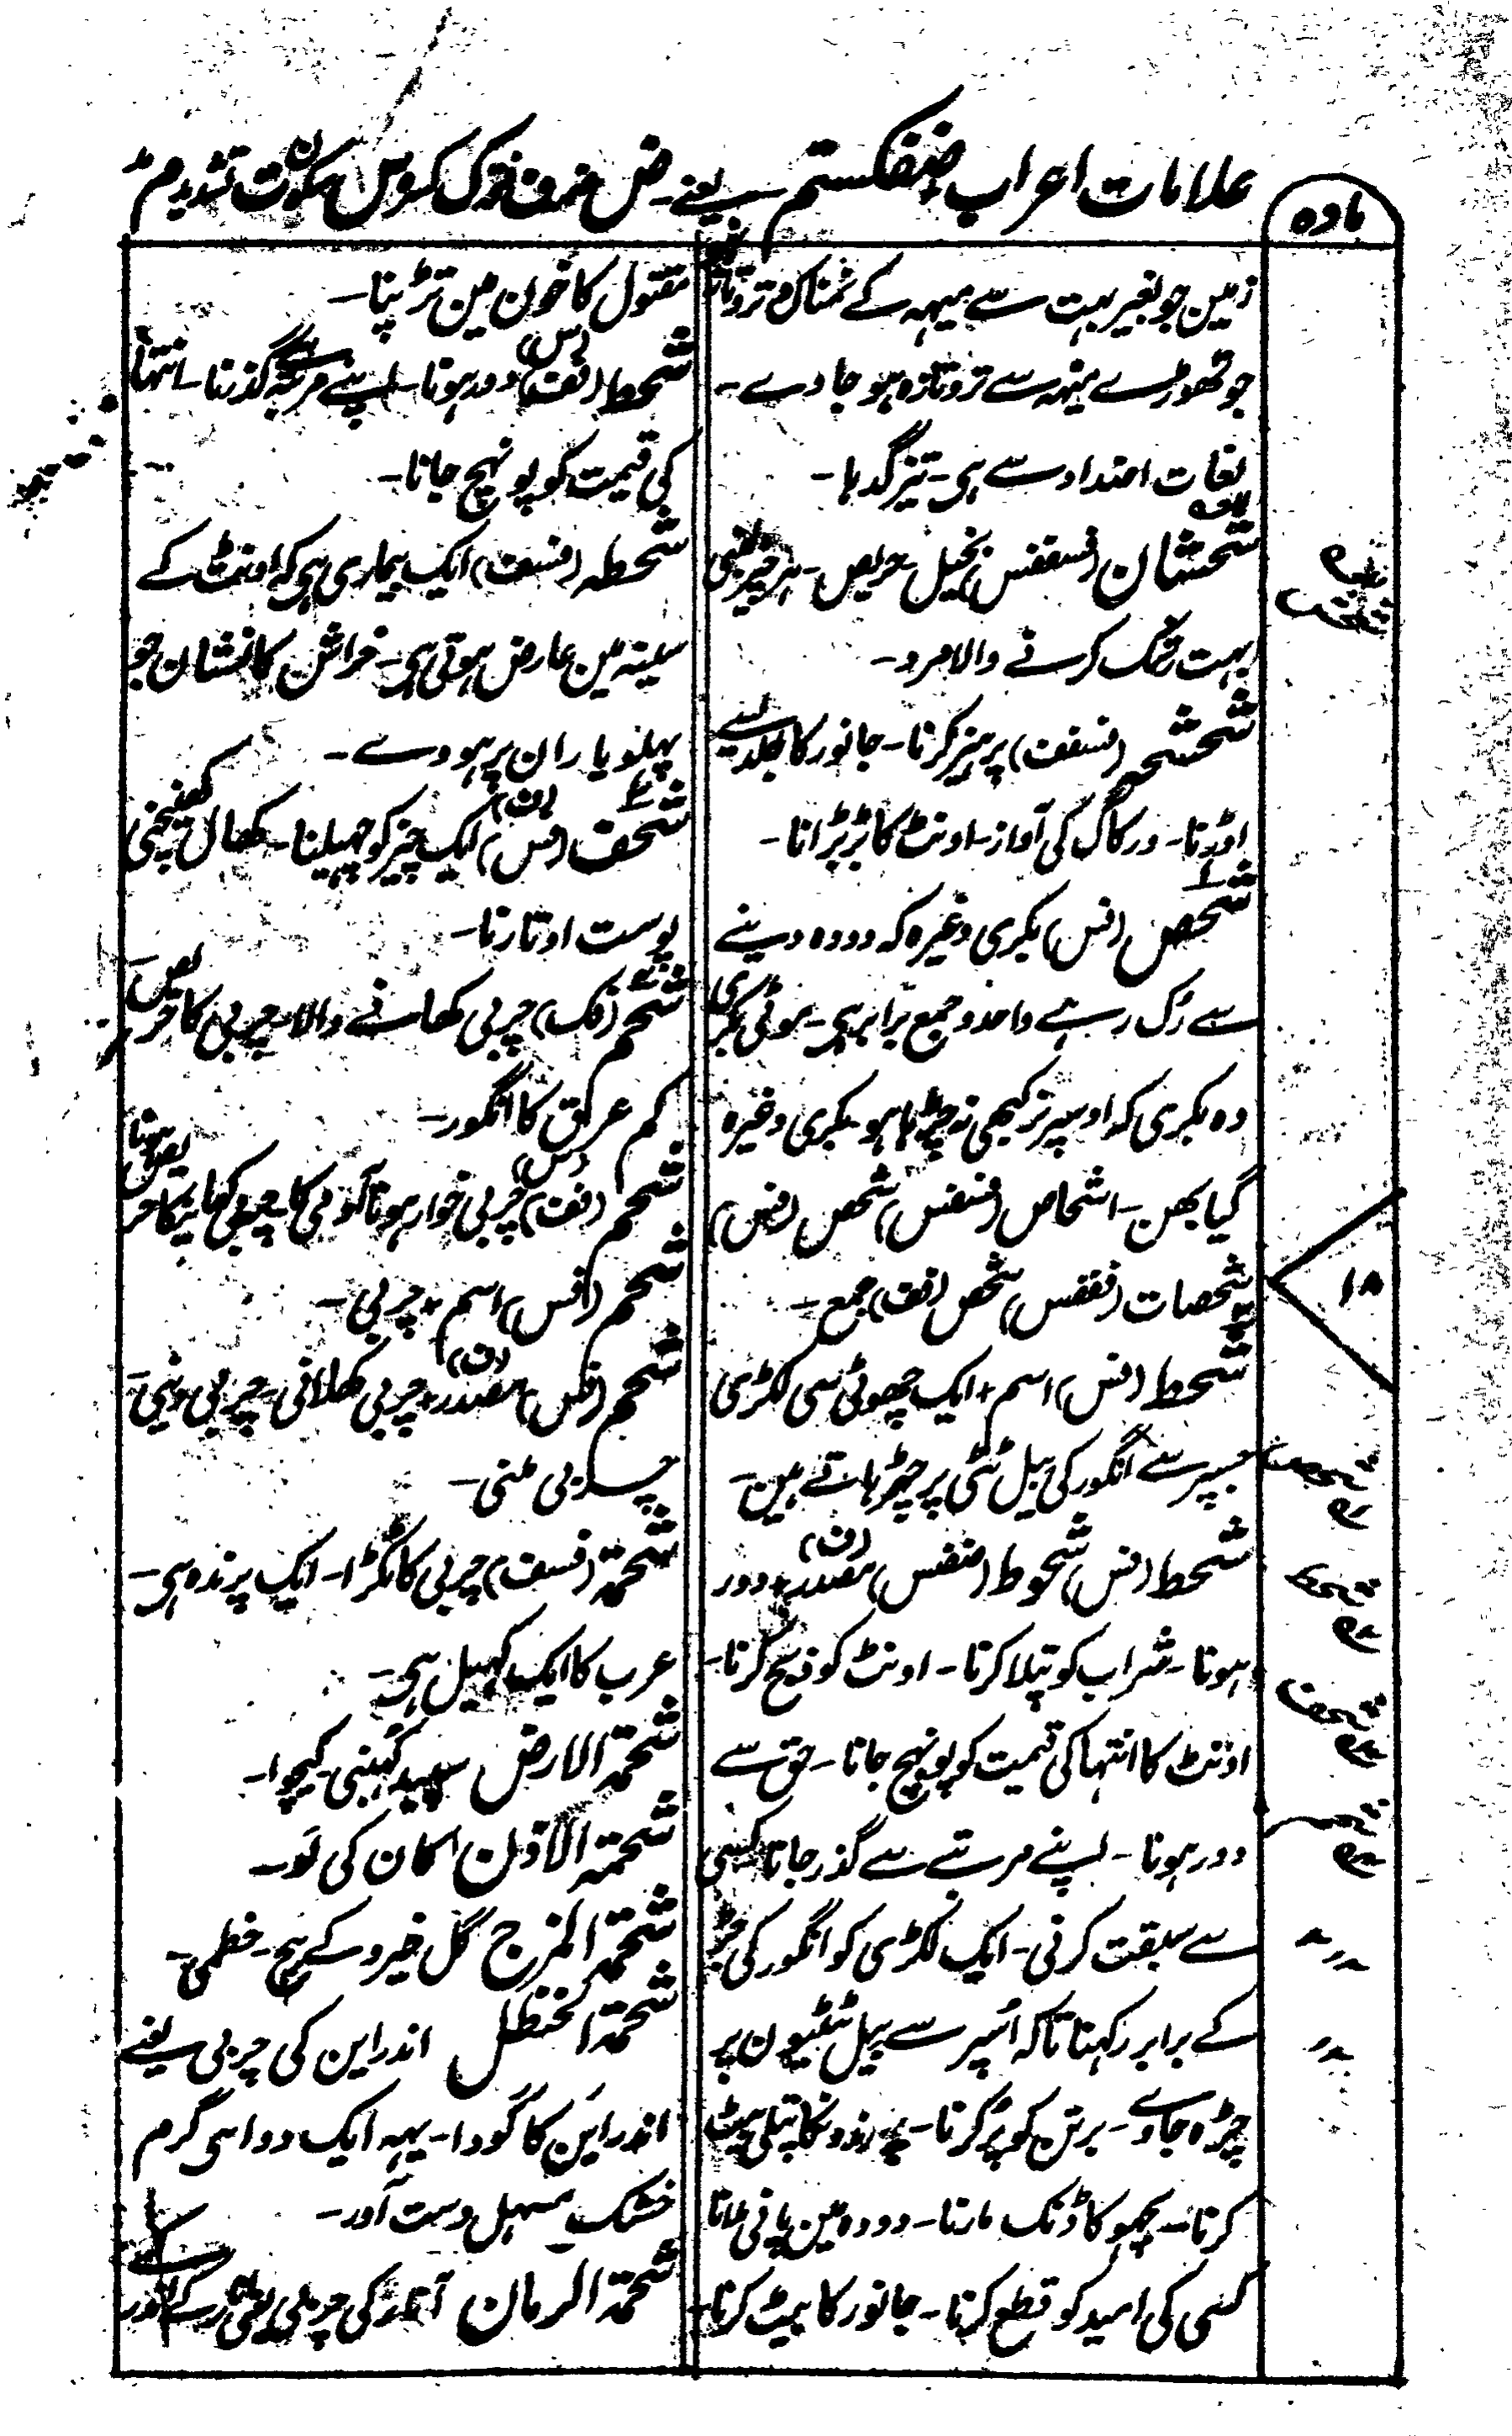 علامات اعراب ضفکستم یعنے۔ ض ف ک س ت م
مادہ
زمین جو بغیر بہت سے میہہ کے نمناک و تروتازہ
جو تھوڑے مینہہ سے تروتازہ ہو جاوے۔
لغات اضداد سے ہی۔ تیز گدہا۔
شحشان (فسففس) بخیل۔ حریص۔ ہر چیز میں
بہت کرنے والا مرد۔
شحشحہ (فسففت) پرہیز کرنا۔ جانور کا جلد
اوڑنا۔ کی آواز۔ اونٹ کا بڑبڑانا۔
شحص (فس) بکری وغیرہ کہ دودہ دینے
سے رُک رہے واحد و جمع برابر ہی۔ موٹی بکری
وہ بکری کہ اوسپر نر کبھی نہ چڑہا ہو۔ بکری وغیرہ
گیابھن۔ اشحاص (فسففس) شحص (فس)
شحصات (فففس) شحص (فف) جمع۔
شحط (فس) اسم، ایک چھوٹی سی لکڑی
جسپر سے انگور کی بیل ٹٹی پر چڑہاتے ہین۔
شحط (فس) شحوط (ضفس) (ف) مصدر، دور
ہونا۔ شراب کو پتلا کرنا۔ اونٹ کو ذبح کرنا۔
اونٹ کا انتہا کی قیمت کو پونہچ جانا۔ حق سے
دور ہونا۔ اپنے مرتبے سے گذر جانا کسی
سے سبقت کرنی۔ ایک لکڑی کو انگور کی جڑ
کے برابر رکہنا تاکہ اسپر سے بیل ٹٹیون پر
چڑہ جاوے۔ برتن کو پُر کرنا۔ پرندونکا پتلی بیٹ
کرنا۔ بچھو کا ڈنک مارنا۔ دودہ مین پانی ملانا
کسی کی امید کو قطع کرنا۔ جانور کا بیٹ کرنا۔
مقتول کا خون مین تڑپنا۔
شحط (فف) (س) دور ہونا۔ اپنے مرتبہ سے گذرنا۔ انتہا
کی قیمت کو پونہچ جانا۔
شحطہ (فسف) ایک بیماری ہی کہ اونٹ کے
سینہ مین عارض ہوتی ہی۔ خراش کا نشان جو
پہلو یا ران پر ہووے۔
شحف (فس) (ف) ایک چیز کو چہیلنا۔ کھال کھینچنی
پوست اوتارنا۔
شحم (فک) چربی کھانے والا۔ چربی کا حریص۔
کم عرق کا انگور۔
شحم (فف) (س) چربی خوار ہونا آدمی کا۔ چربی کھانیکا حریص ہونا
شحم (فس) اسم، چربی۔
شحم (فس) (ف) مصدر، چربی کھلانی۔ چربی دینی۔
چربی ملنی۔
شحمة (فسف) چربی کا ٹکڑا۔ ایک پرندہ ہی۔
عرب کا ایک کہیل ہی۔
شحمة الارض سپید کہنبی۔ کیچوا۔
شحمة الاذن کان کی لَو۔
شحمة المرج گل خیرو کے بیج۔ خطمی۔
شحمة الحنظل اندراین کی چربی یعنے
اندراین کا گودا۔ یہہ ایک دوا ہی گرم
خشک مسہل دست آور۔
شحمة الرمان انار کی چربی یعنی انار کے اندر کے
۱۸